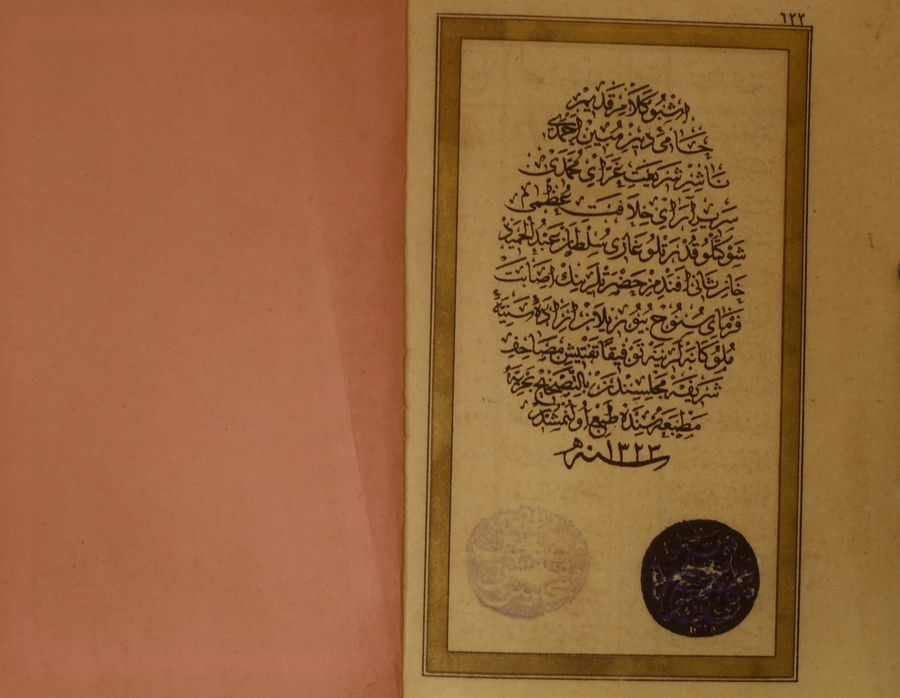 ٦٢٢
اشبو كلام قديم
حامئ دين مبين احمدى
ناشر شريعت غراى محمدى
سرير اراى خلافت عظمى
شوكتلو قدرتلو غازى سلطان عبد الحميد
خان ثانى افندمز حضرتلرينك اصابت
فرماى سنوح بيوريلان اراده سنيه
ملوكانه لرينه توفيقا تفتيش مصاحف
شريفه مجلسندن بالتصحيح بحريه
مطبعه سنده طبع اولنمشدر
سنه ١٣٢٣